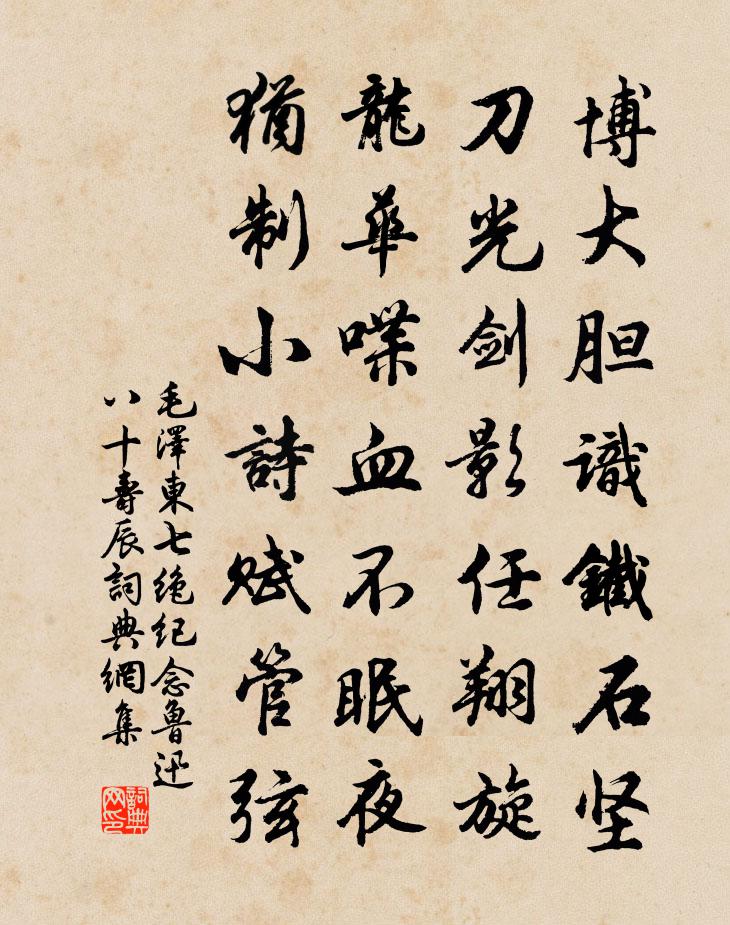 博大胆識鐵石坚
刀光剑影任翔旋
龍華喋血不眠夜
猶制小詩赋管弦
毛澤東七绝纪念魯迅
八十壽辰詞典網集
詞典网印